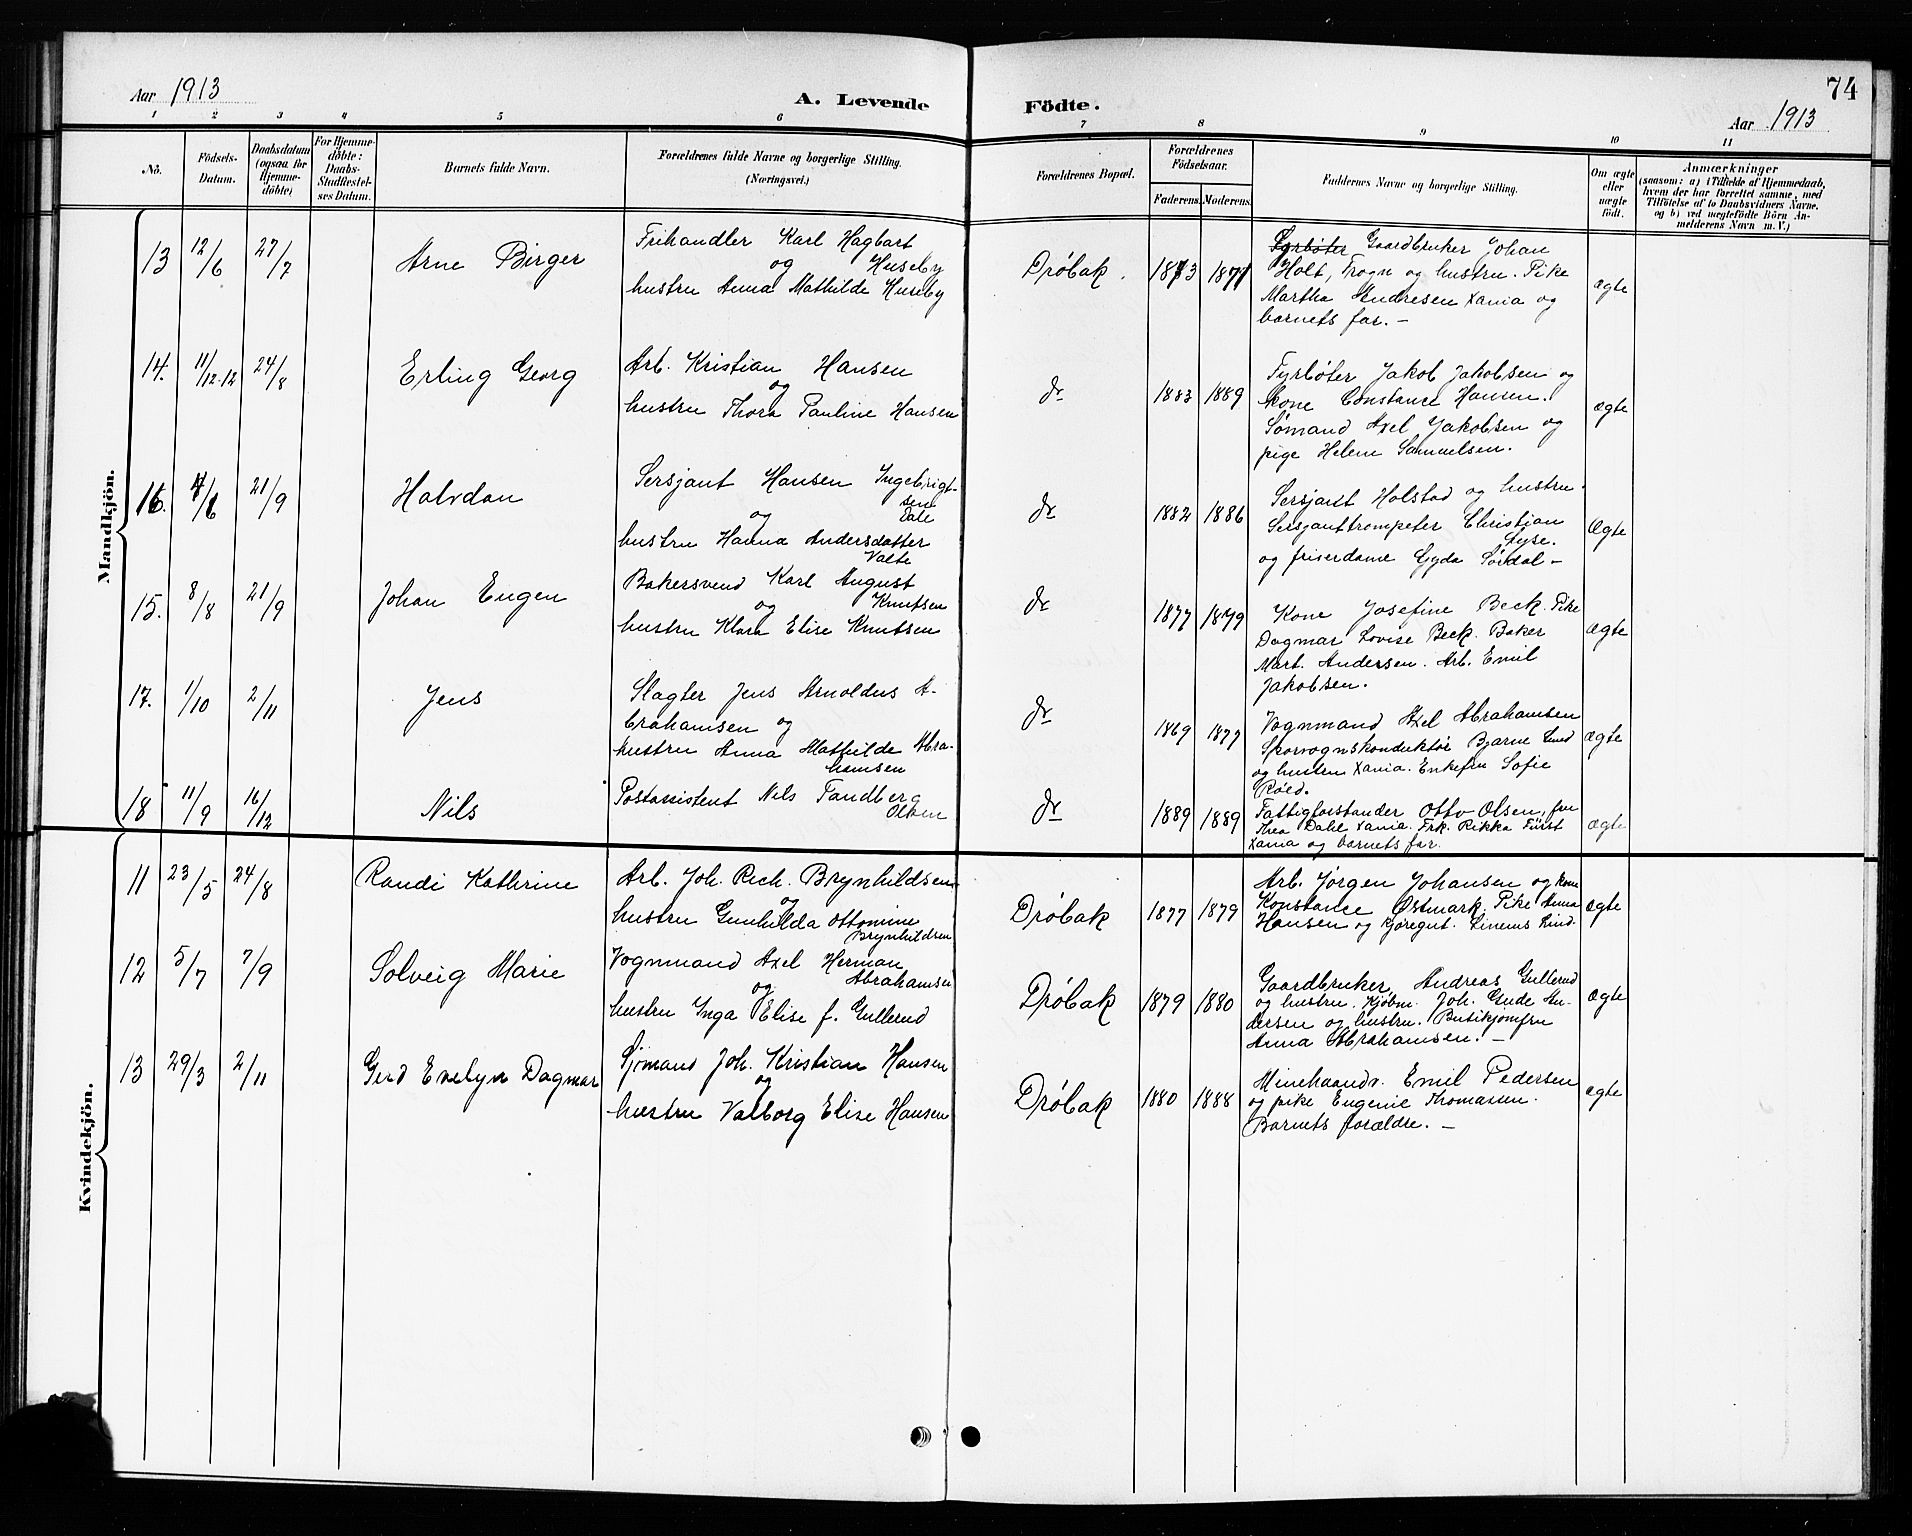 74
Aar 1913
A. Levende Födte.
Aar 1913
1 2 3 4 5 6 7 8 9 10 11
No.
Födsels-
Datum.
Daabsdatum
(ogsaa for
Hjemme-
döbte)
For Hjemme-
döbte:
Daabs-
Stadfæstel-
ses Datum.
Barnets fulde Navn.
Forældrenes fulde Navne og borgerlige Stilling.
(Næringsvei.)
Forældrenes Bopæl.
Forældrenes
Födselsaar.
Faderens. Moderens.
Faddernes Navne og borgerlige Stilling.
Om ægte
eller
uægte
født.
Anmærkninger
(saasom: a) i Tilfælde af Hjemmedaab,
hvem der har forrettet samme, med
Tilføielse af to Daabsvidners Navne.
og b) ved uægtefödte Börn An-
melderens Navn m. V.)
Mandkjön.
13 12/6 27/7 Arne Birger
Frihandler Karl Hagbart
og Huseby
hustru Anna Mathilde Huseby
Drøbak. 1873 1877
Fyrbøter Gaardbruker Johan
Holt, Frogn og hustru. Pike
Martha Andresen Xania og
barnets far. -
ægte
14. 11/12-12 24/8 Erling Georg
Arb. Kristian Hansen
og
hustru Thora Pauline Hansen
do 1883 1889
Fyrbøter Jakob Jakobsen og
kone Constance Hansen.
Sømand Axel Jakobsen og
pige Helene Samuelsen.
ægte
16. 21/9 Halvdan
Sersjant Hansen Ingebrigt-
sen
og Dale
hustru Hanna Andersdatter
Valte
do 1882 1886
Sersjant Holstad og hustru.
Sersjanttrompeter Christian
Lyse.
og friserdame Gyda Sørdal -
Ægte
15. 8/8 21/9 Johan Eugen
Bakersvend Karl August
og Knutsen
hustru Klara Elise Knutsen
do 1877 1879
Kone Josefine Beck. Pike
Dagmar Lovise Beck. Baker
Mart. Andersen. Arb. Emil
Jakobsen.
Ægte
17. 1/10 2/11 Jens
Slagter Jens Arnoldus A-
brahamsen og
hustru Anna Mathilde Abra-
hamsen
do 1869 1877
Vognmand Axel Abrahamsen
Sporvognskonduktør Bjarne
og hustru Xania. Enkefru Sofie
Røed.
ægte
18 11/9 16/12 Nils
Postassistent Nils Tandberg
Olsen
do 1889 1889
Fattigforstander Otto Olsen, fru
Thea Dahl Xania. Frk. Rikka Fürst
Xania og barnets far.
ægte
Kvindekjön.
11 23/5 24/8 Randi Kathrine
Arb. Joh. Rich. Brynhildsen
og
hustru Gunhilda Ottomine
Brynhildsen
Drøbak 1877 1879
Arb. Jørgen Johansen og kone
Konstance Østmark. Pike Anna
Hansen og kjøregut. Linerus Lind.
ægte
12 5/7 7/9 Solveig Marie
Vognmand Axel Herman
og Abrahamsen
hustru Inga Elise f. Gullerud
Drøbak 1879 1880
Gaardbruker Andreas Gullerud
og hustru. Kjøbm. Joh. Gude An-
dersen og hustru. Butikjomfru
Anna Abrahamsen. -
ægte
13 29/3 2/11 Gerd Evelyn Dagmar
Sjømand Joh. Kristian Hansen
og
hustru Valborg Elise Hansen
Drøbak 1880 1888
Minehaandv. Emil Pedersen
og pike Eugenie Thomassen.
Barnets forældre. -
ægte